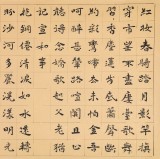 紅妝春騎踏月影竿旗
穿市望不盡樓臺歌舞
習香塵蓮步底簫聲斷約
彩鸞歸去未怕金吾
呵醉甚輦路喧闐且止
聽得念奴歌起父老猶
記宣和事
盼沙河多麗滉漾明光